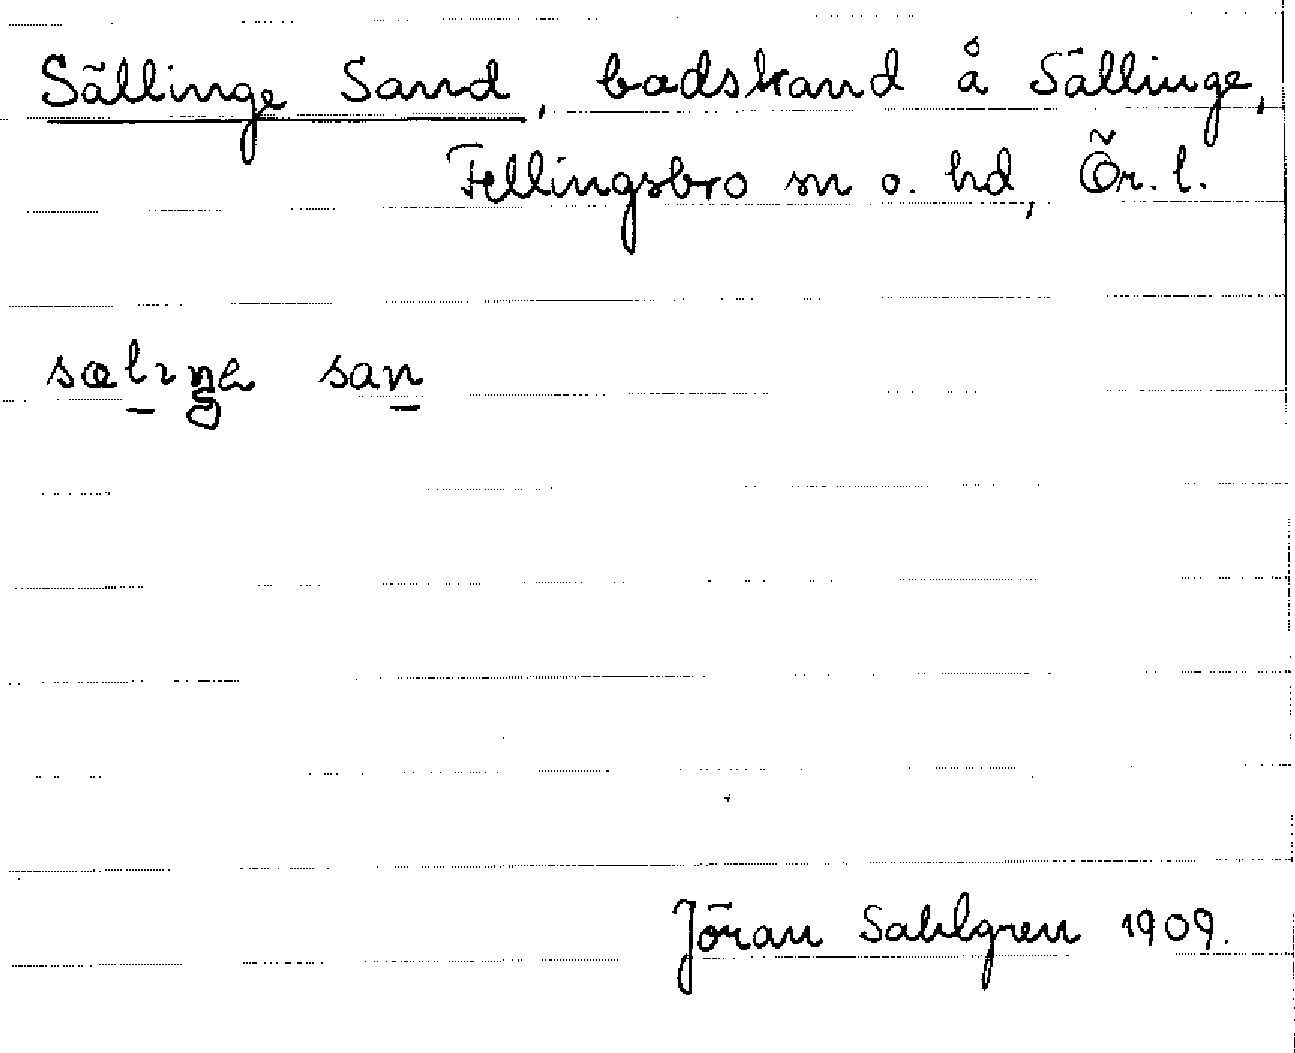 Sällinge Sand, badstrand å Sällinge,
Fellingsbro sn o. hd, Ör. l.
sælıŋə san
Jöran Sahlgren 1909.